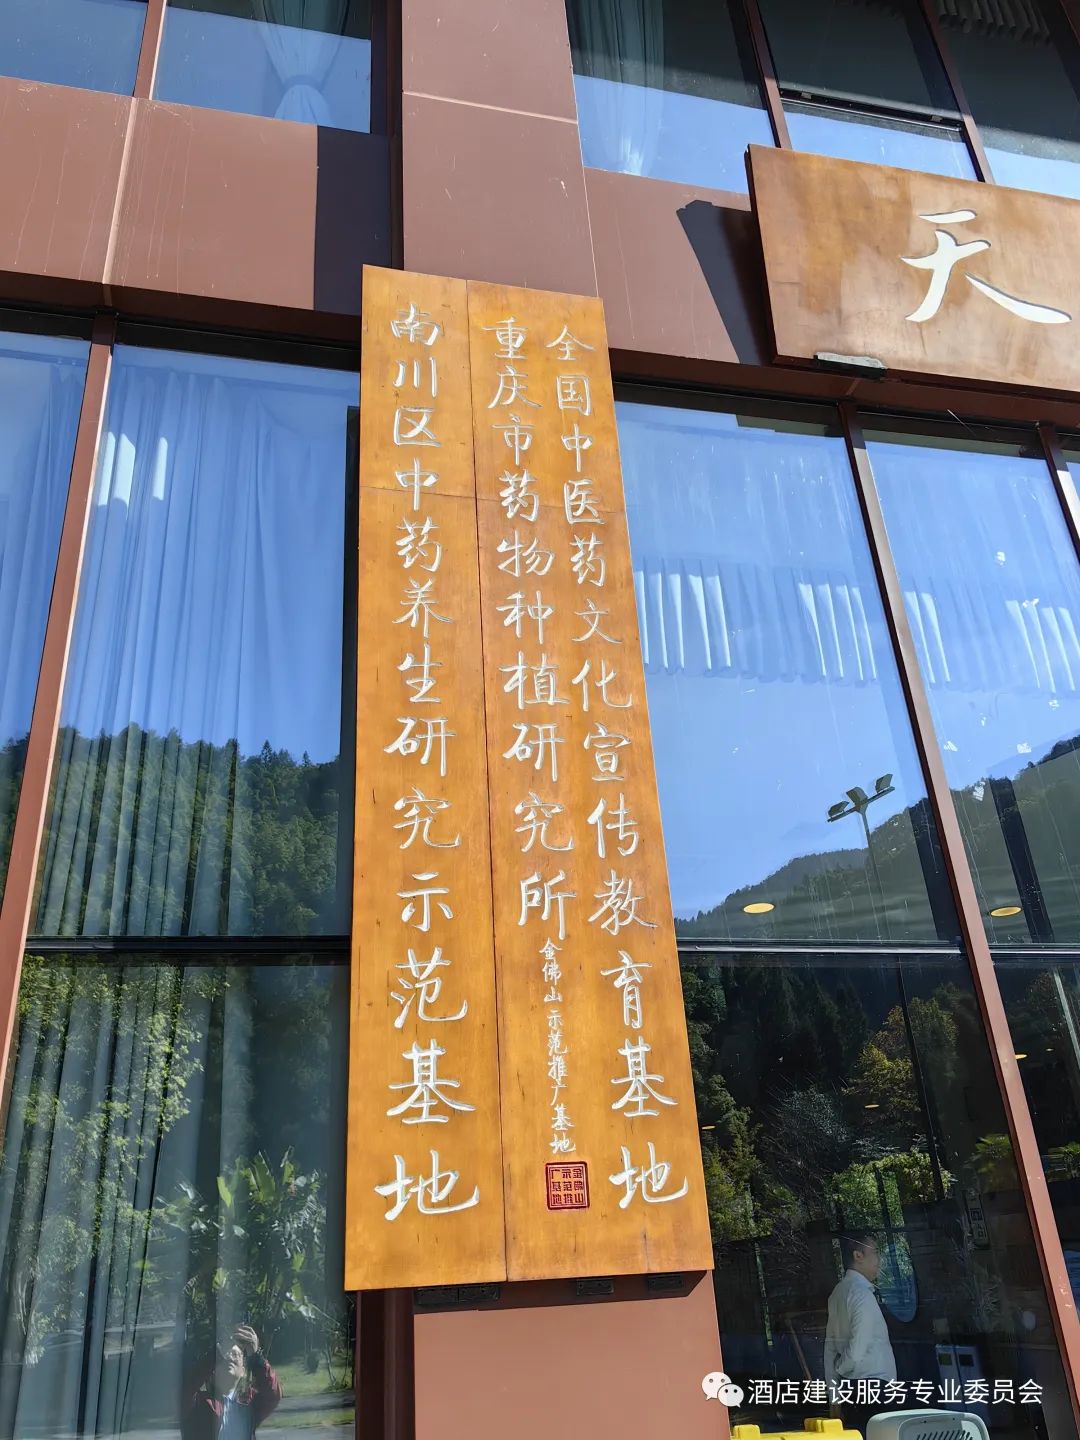 天
全国中医药文化宣传教育基地
重庆市药物种植研究所
金佛山示范推广基地
金佛山
示范推
广基地
南川区中药养生研究示范基地
酒店建设服务专业委员会